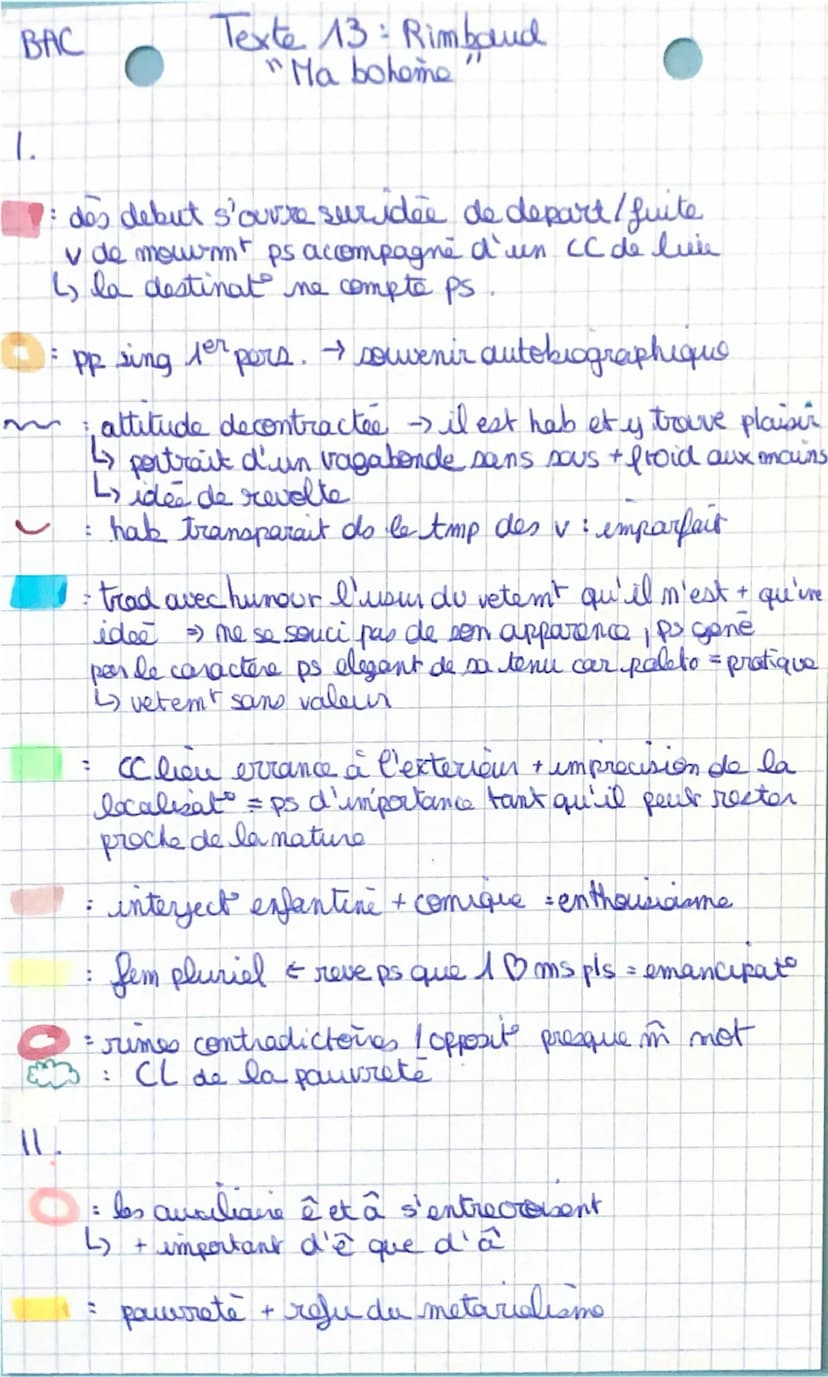 BAC
Texte 13 : Rimbaud
"Ma boheme"
I.
: dès debut s'ouvre sur idée de depart / fuite
v de mouvmt ps accompagné d'un CC de luie
↳ la destinat° ne compte ps.
: pp sing 1er pers. → souvenir autobiographique
: attitude decontractée → il est hab et y trouve plaisir
↳ portrait d'un vagabonde sans sous + froid aux mains
↳ idée de revolte
: hab transparait ds le tmp des v : imparfait
: trad avec humour l'usur du vetemt qu'il n'est + qu'une
ideé ⇒ ne se souci pas de son apparence, ps gené
par le caractère ps elegant de sa tenu car paleto = pratique
↳ vetemt sans valeur
: CC lieu errance à l'exterieur + imprecision de la
localisat° = ps d'importance tant qu'il peut rester
proche de la nature
: interject° enfantine + comique = enthousiasme
: fem pluriel ← reve ps que 1 ♡ ms pls = emancipat°
: rimes contradictoires / opposit° presque m̂ mot
: CL de la pauvreté
II.
: les auxiliaire ê et â s'entrecroisent
↳ + important d'ê que d'â
: pauvreté + refu du metarialisme